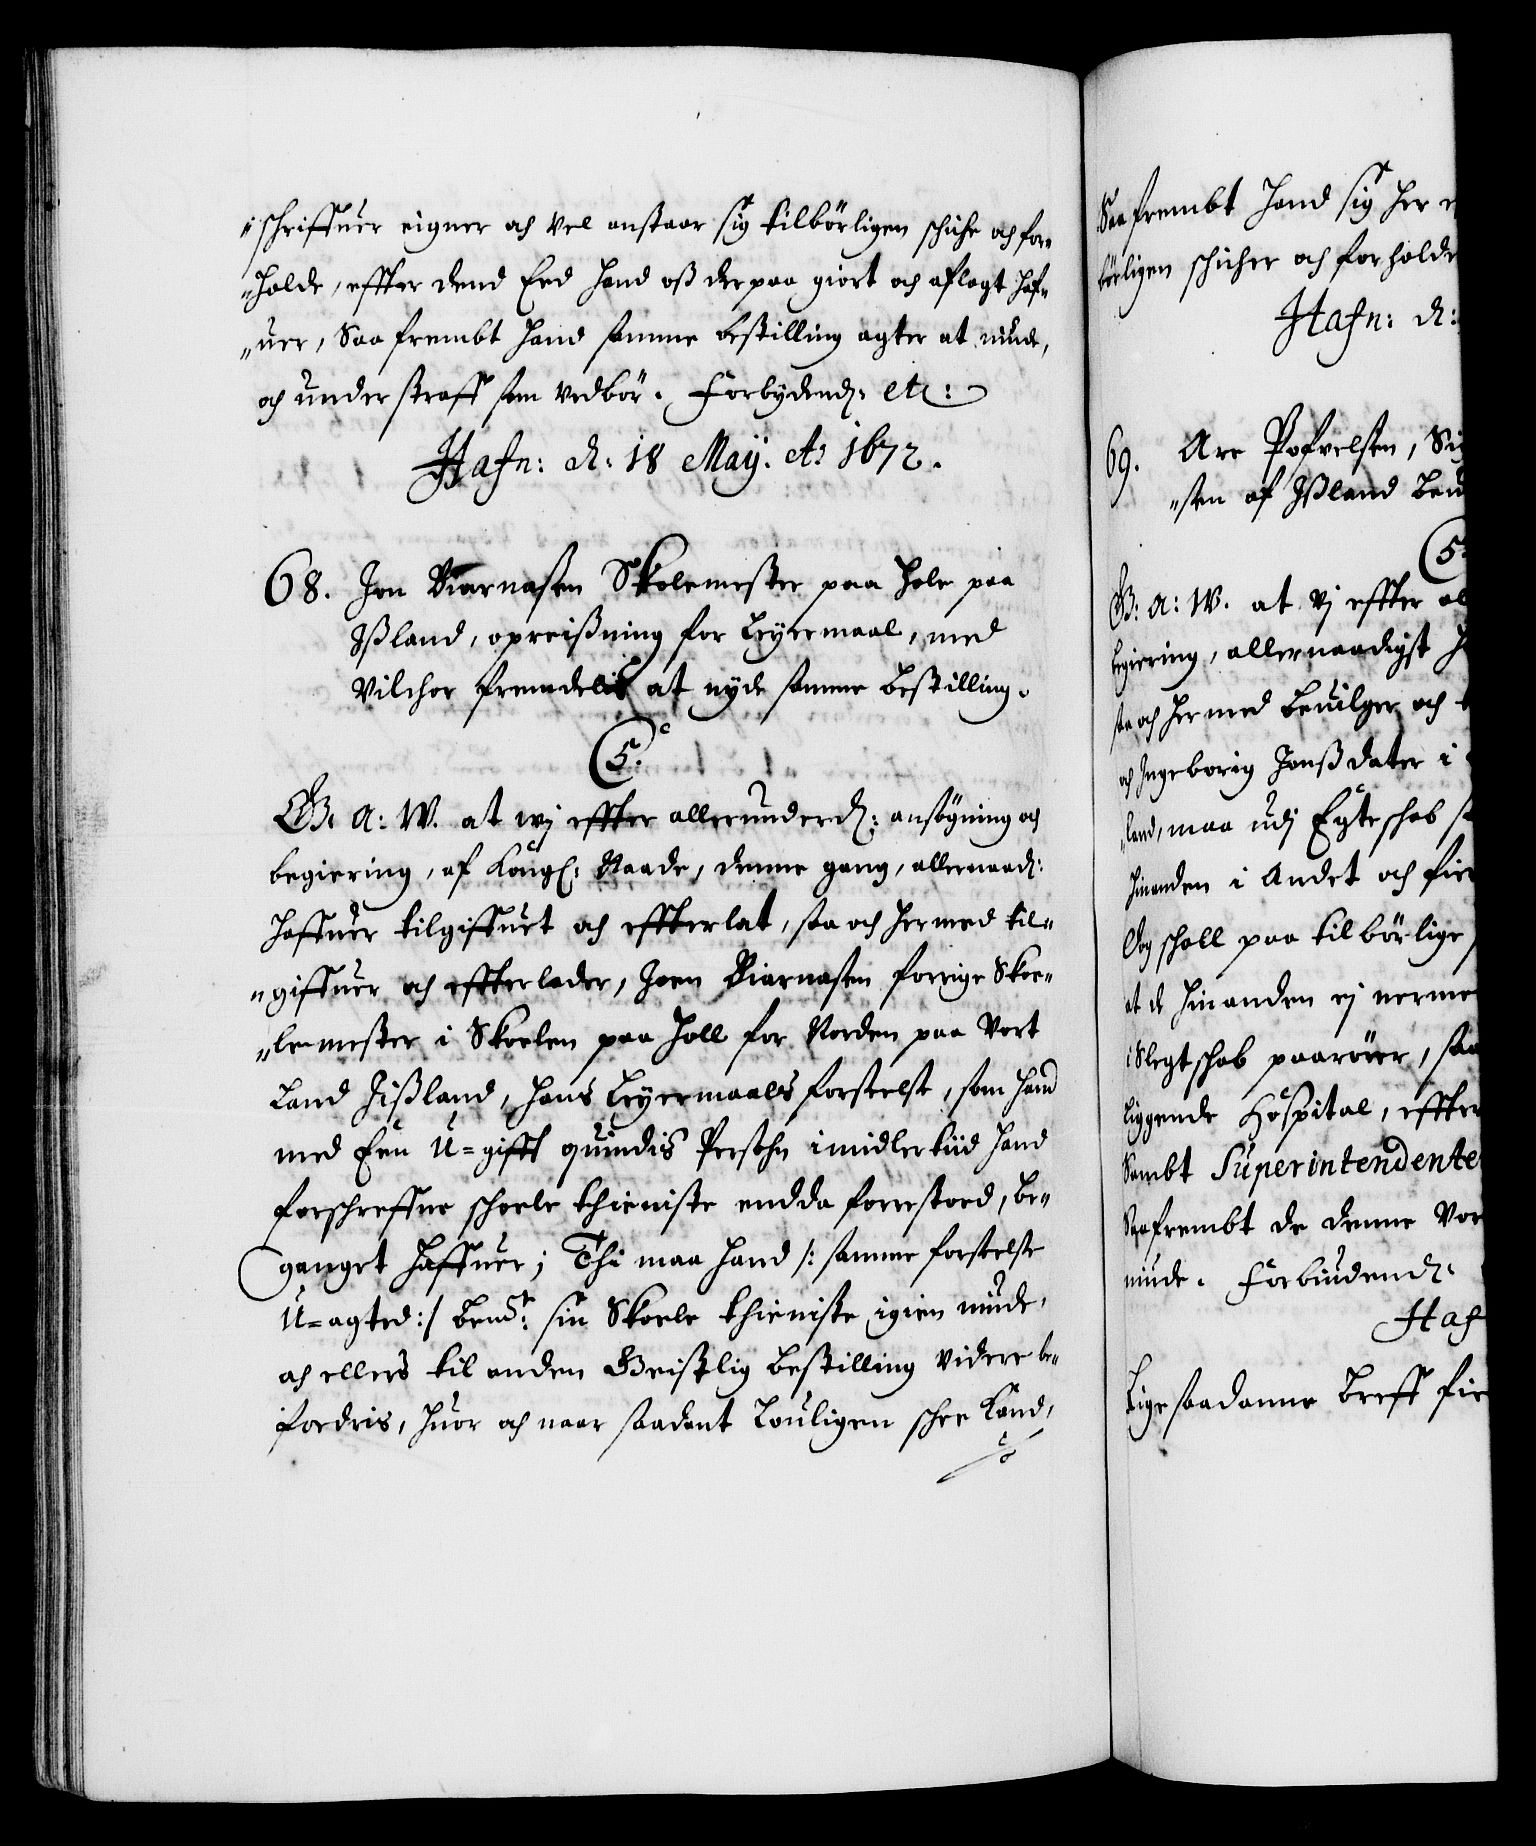 i schriffuer eigner och vel anstaar sig tilbörligen schiche och for„
„holde, effter dend Eed hand oß der paa giort och aflagt haf„
„uer, Saa frembt hand samme bestilling agter at niude,
och under straff som vedbör. Forbydend: etc:
Hafn: d: 18 Maÿ. Aō 1672.
68. Jon Biarnasen Skolemester paa Hole paa
Ißland, opreißning for Leyermaal, med
Vilchor fremdelis at nyde samme bestilling.
C 5.
G. A: W. at wj effter allerunderd: ansögning och
begiering, af Kongl: Naade, denne gang, allernaad:
haffuer tilgiffuet och effterlat, saa och hermed til„
„giffuer och effterlader, Joen Biarnasen forrige Skoe„
„lemester i Skoelen paa Holl for Norden paa Vort
Land Jißland, hans Leyermaals forseelse, som hand
med Een U=gifft quindis Persohn imidlertiid hand
forschreffne schoele thieniste endda forrestoed, be„
ganget haffuer; Thi maa hand /: samme forseelse
U=agted :/ bemt: sin Skoele thieniste igien niude,
och ellers til anden Geistlig bestilling videre be„
fordris, huor och naar saadant Louligen schee Kand,
Saa frembt hand sig her
börligen schicher och forholde
Hafn: d:
69. Are Pofvelsen, Si
„sen af Ißland beu
C 5
G: A: W. at vj effter al
begiering, allernaadigst h
saa och hermed beuilger och t
och Ingeborig Jonßdater i
„land, maa udj Egteschab
hinanden i Andet och fie
Dog schall paa tilbörlige
at de hinanden ej nerme
i Slegtschab paarörer, saa
liggende Hospital, effter
Sambt Superintendente
Saafrembt de denne Vor
niude. Forbiudend:
Haf
Lige saadanne breff fie